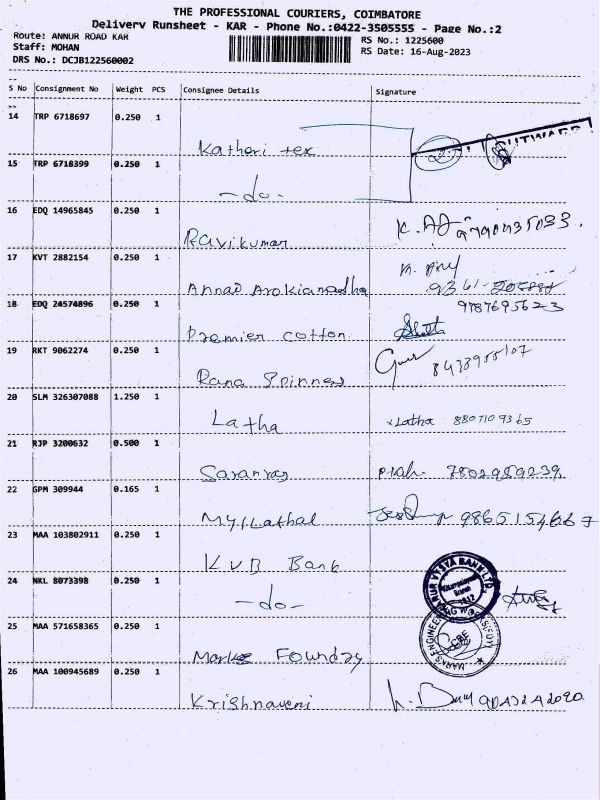 THE PROFESSIONAL COURIERS, COIMBATORE
Delivery Runsheet - KAR - Phone No.:0422-3505555 - Page No.:2
Route: ANNUR ROAD KAR RS No.: 1225600
Staff: MOHAN RS Date: 16-Aug-2023
DRS No.: DCJB122560002
S No Consignment No Weight PCS Consignee Details Signature
14 TRP 6718697 0.250 1
Katheri tex
15 TRP 6718399 0.250 1
-do-
16 EDQ 14965845 0.250 1
Ravikumar
17 KVT 2882154 0.250 1
Annai Arokiamadha
18 EDQ 24574896 0.250 1
9787695623
Premier cotton
19 RKT 9062274 0.250 1
Rana Spinners
20 SLM 326307088 1.250 1
Latha Latha 8807109365
21 RJP 3200632 0.500 1
Saranraj 7802989239
22 GPM 309944 0.165 1
9865154667
23 MAA 103802911 0.250 1
KVB Bank
24 NKL 8073398 0.250 1
-do-
25 MAA 571658365 0.250 1
Foundry
26 MAA 100945689 0.250 1
Krishnaveni